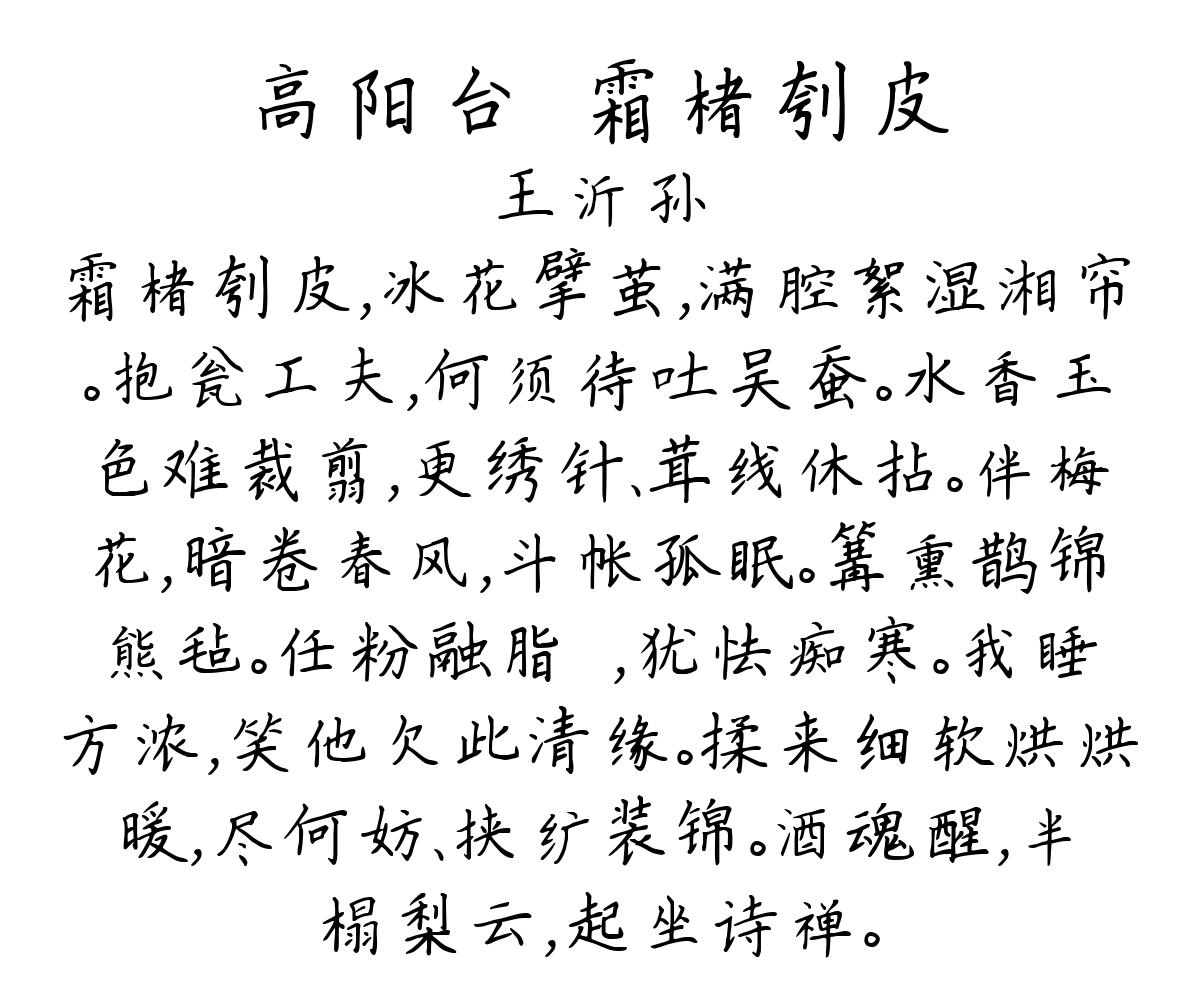 高阳台 霜楮刳皮
王沂孙
霜楮刳皮,冰花擘茧,满腔絮湿湘帘
。抱瓮工夫,何须待吐吴蚕。水香玉
色难裁剪,更绣针、茸线休拈。伴梅
花,暗卷春风,斗帐孤眠。篝熏鹊锦
熊毡。任粉融脂 ,犹怯痴寒。我睡
方浓,笑他欠此清缘。揉来细软烘烘
暖,尽何妨、挟纩装锦。酒魂醒,半
榻梨云,起坐诗禅。